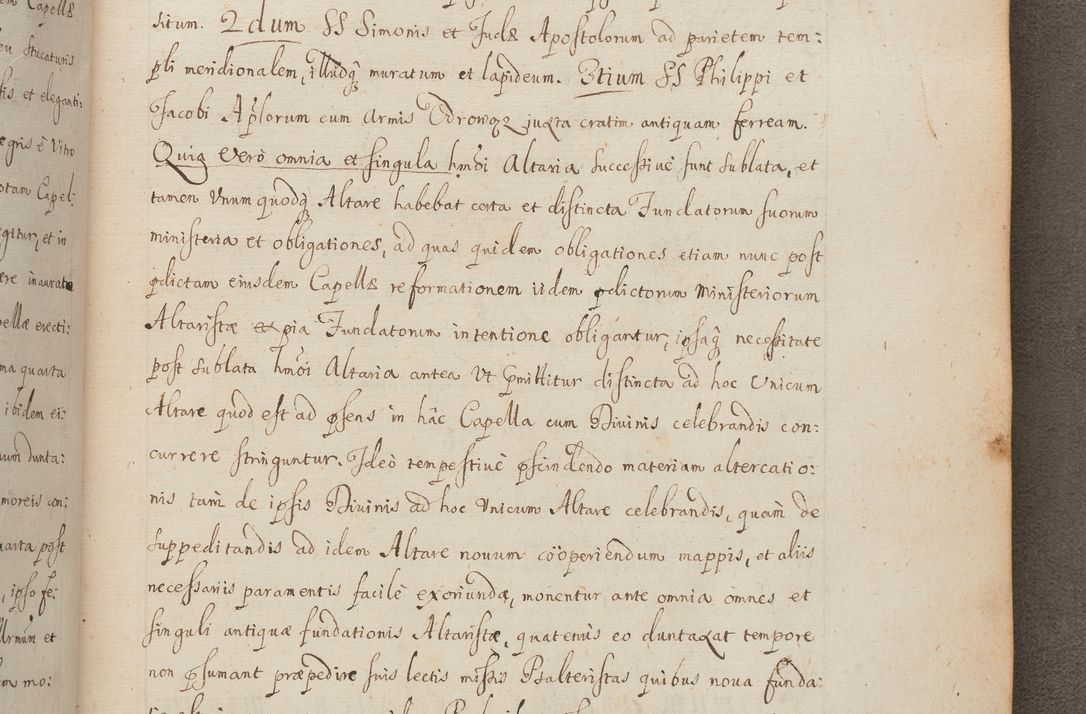 m Capellæ
eu stuccaturis
fis, et eleganti:
egris è Vitro
otam Capel:
gitur, et in
ere inauratæ
pellæ erecti:
ma quarta
ibidem ei:
uum dunta:
moreis con:
uarta post
, ipso fe:
Armum et
m mo:
situm. 2dum SS Simonis et Judæ Apostolorum ad parietem tem:
pli meridionalem, illudq; muratum et lapideum. 3tium SS Philippi et
Jacobi Aplorum cum Armis Odrowąz juxta cratim antiquam ferream.
Quia verò omnia et singula hmõi Altaria successivè sunt sublata, et
tamen Vnum quodq; Altare habebat certa et distincta Fundatorum suorum
ministeria et obligationes, ad quas quidem obligationes etiam nunc post
pdictam eiusdem Capellæ reformationem iidem pdictorum Ministeriorum
Altaristæ ex pia Fundatorum intentione obligantur, ipsaq; necessitate
post sublata hmõi Altaria antea Vt pmittitur distincta ad hoc Vnicum
Altare quod est ad psens in hâc Capella cum Divinis celebrandis con:
currere stringuntur. Ideò tempestivè pscindendo materiam altercatio:
nis tam de ipsis Divinis ad hoc Vnicum Altare celebrandis, quam de
suppeditandis ad idem Altare novum coöperiendum mappis, et aliis
necessariis paramentis facilè exoriundæ, monentur ante omnia omnes et
singuli antiquæ fundationis Altaristæ, quatenus eo duntaxat tempore
non psumant præpedire suis lectis missis Psalteristas quibus noua funda: